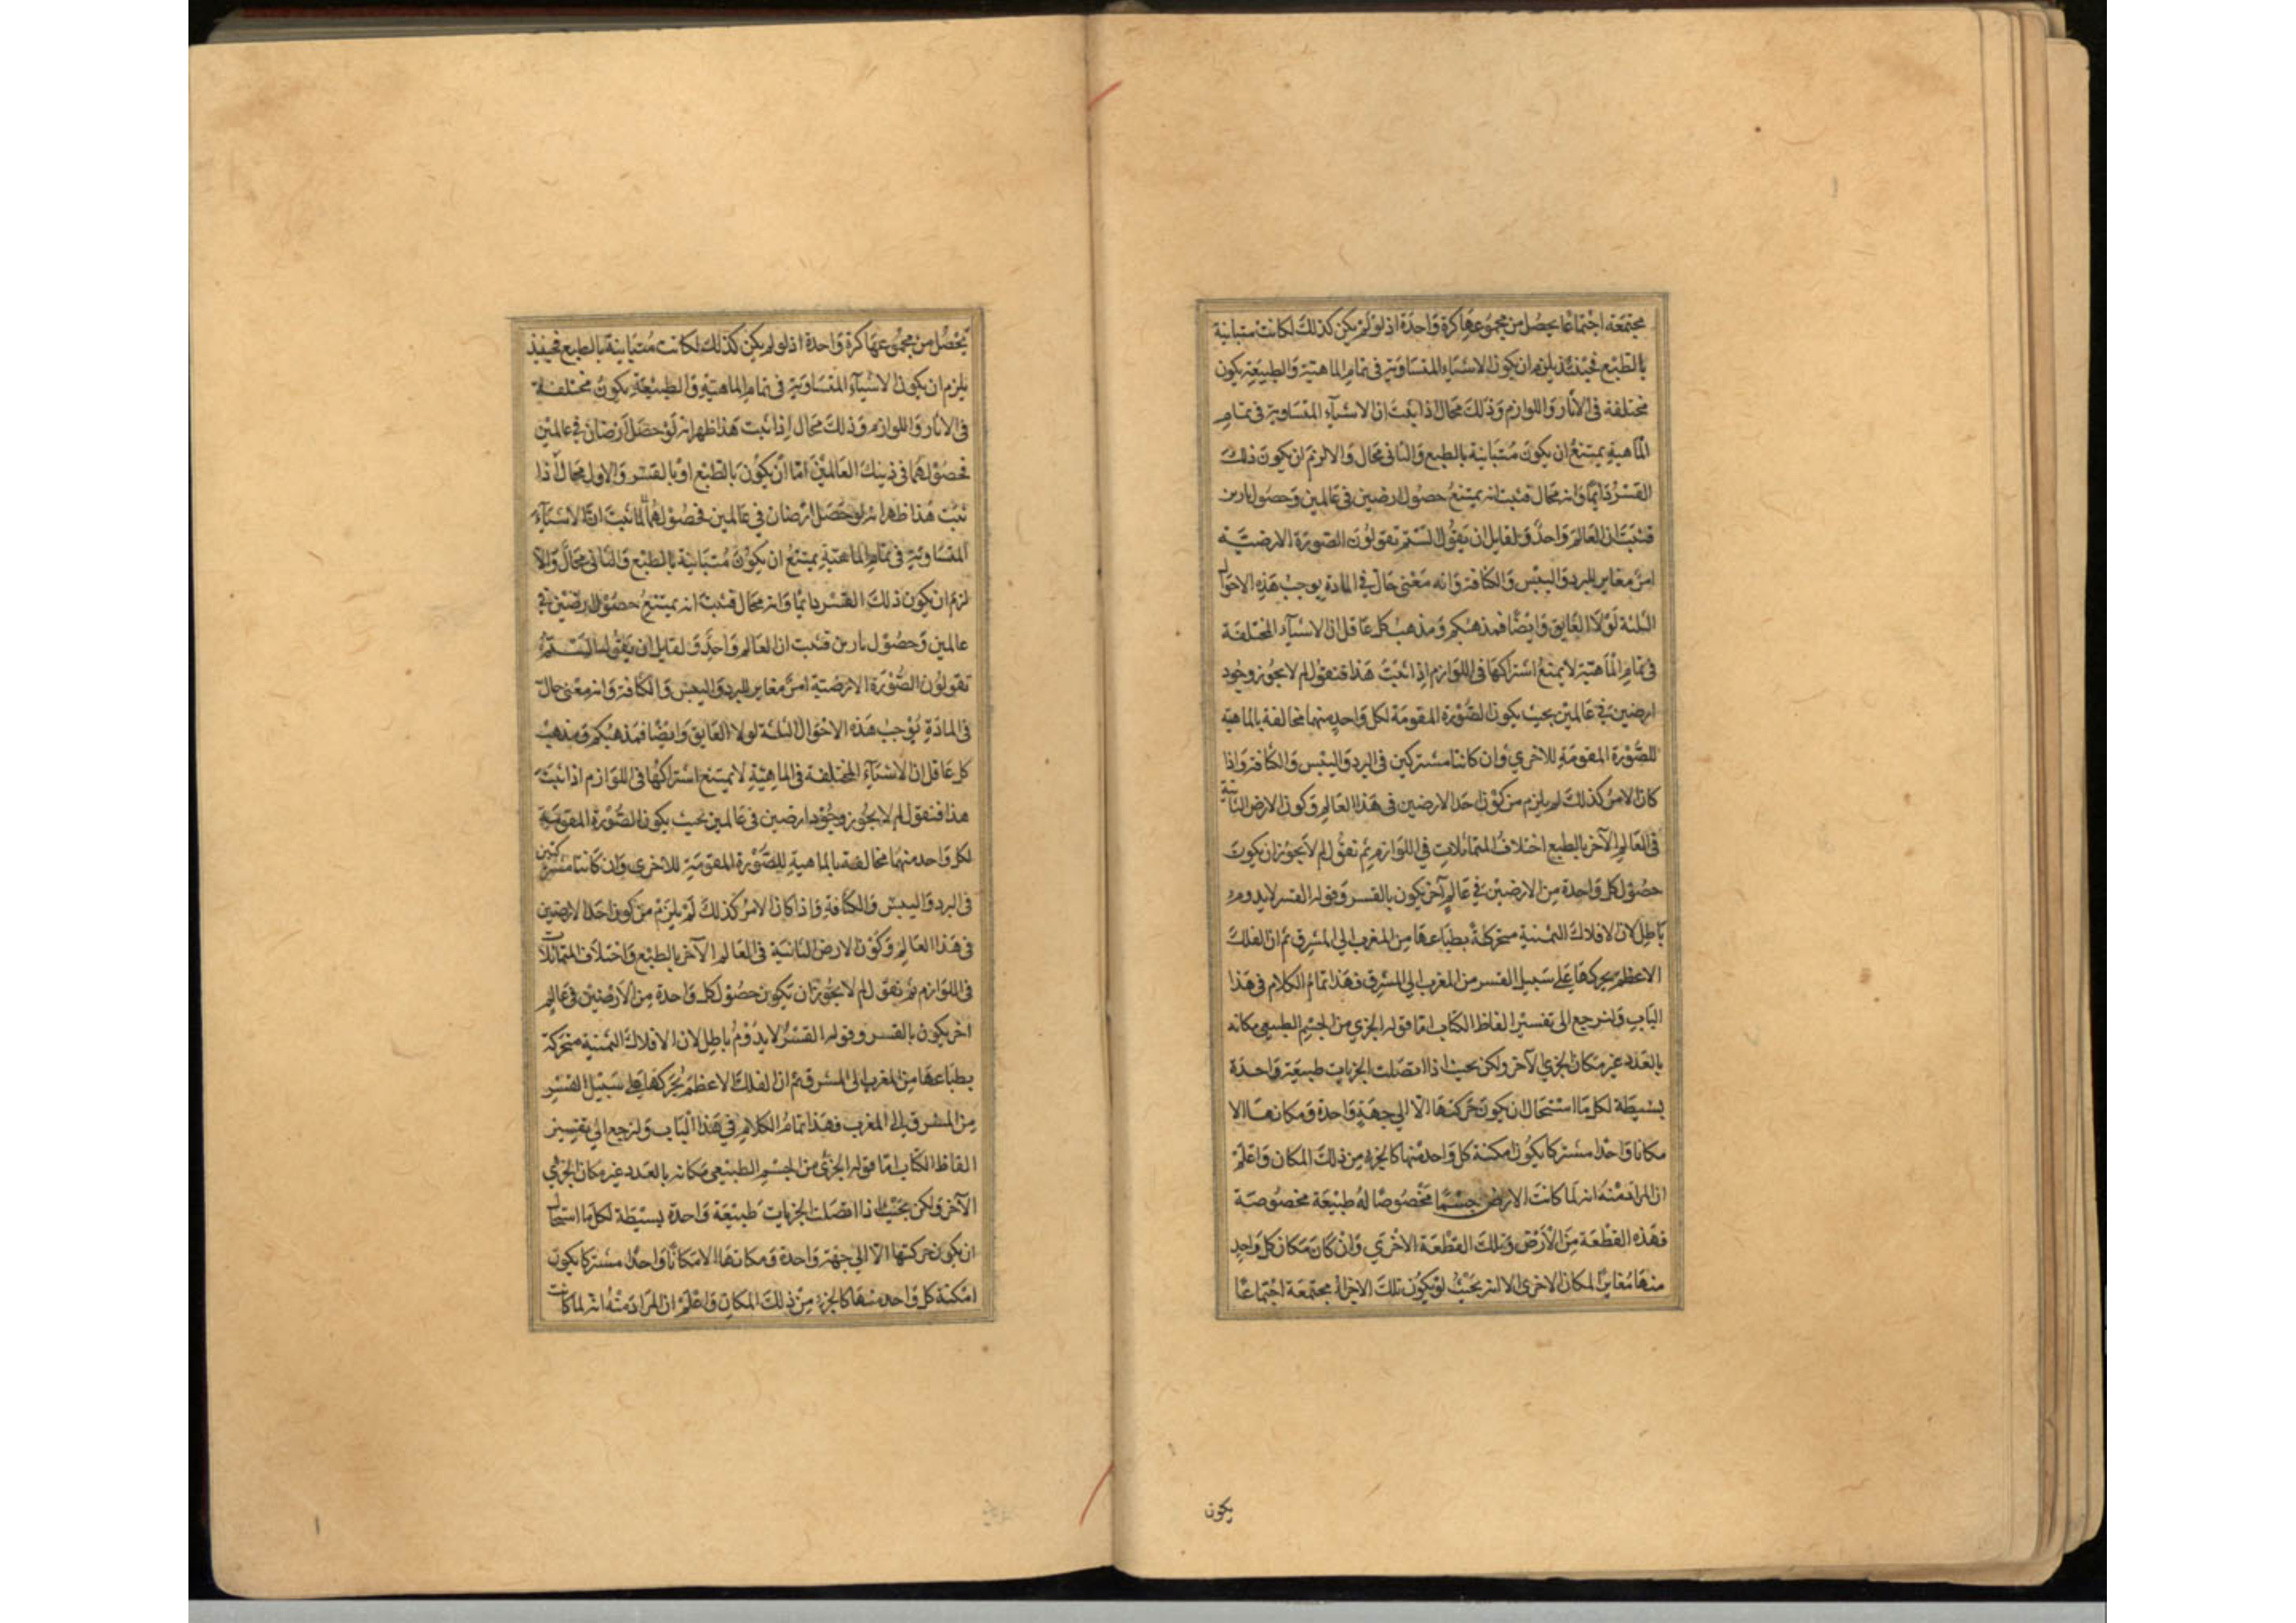 مجتمعة اجتماعا يحصل من مجموعها كرة واحدة اذ لو لم يكن كذلك لكانت متباينة
بالطبع فحينئذ يلزم ان يكون الاشياء المتساوية فى تمام الماهية والطبيعة يكون
مختلفة فى الاثار واللوازم وذلك محال اذا ثبت ان الاشياء المتساوية فى تمام
الماهية يمتنع ان يكون متباينة بالطبع والثانى محال والا لزم ان يكون ذلك
القسر دايما وانه محال فثبت انه يمتنع حصول ارضين فى عالمين وحصول نارين
فثبت ان العالم واحد ولقايل ان يقول الستم تقولون الصورة الارضية
امر مغاير للبرد واليبس والكثافة وانه معنى حال فى المادة يوجب هذه الاحوال
الثلثة لولا العايق وايضا فمذهبكم ومذهب كل عاقل ان الاشياء المختلفة
فى تمام الماهية لا يمتنع اشتراكها فى اللوازم اذا ثبت هذا فنقول لم لا يجوز وجود
ارضين فى عالمين بحيث يكون الصورة المقومة لكل واحد منهما مخالفة بالماهية
للصورة المقومة للاخرى وان كانتا مشتركين فى البرد واليبس والكثافة واذا
كان الامر كذلك لم يلزم من كون احد الارضين فى هذا العالم وكون الارض الثانية
فى العالم الآخر بالطبع اختلاف المتماثلات فى اللوازم ثم نقول لم لا يجوز ان يكون
حصول كل واحدة من الارضين فى عالم آخر يكون بالقسر وقوله القسر لا يدوم
باطل لان الافلاك الثمنية متحركة بطباعها من المغرب الى المشرق ثم ان الفلك
الاعظم يحركها على سبيل القسر من المغرب الى المشرق فهذا تمام الكلام فى هذا
الباب ولنرجع الى تفسير الفاظ الكتاب اما قوله الجزى من الجسم الطبيعى مكانه
بالعدد غير مكان الجزى الآخر ولكن بحيث اذا اتصلت الجزيات طبيعة واحدة
بسيطة لكل ما استحال ان يكون حركتها الا الى جهة واحدة ومكانها الا
مكانا واحدا مشتركا يكون امكنة كل واحد منها كالجزء من ذلك المكان واعلم
ان المراد منه انه لما كانت الارض جسما مخصوصا له طبيعة مخصوصة
فهذه القطعة من الأرض وتلك القطعة الاخرى وان كان مكان كل واحد
منها مغاير المكان الاخرى الا انه بحيث لو يكون تلك الاجزاء مجتمعة اجتماعا
يكون
يحصل من مجموعها كرة واحدة اذ لو لم يكن كذلك لكانت متباينة بالطبع فحينئذ
يلزم ان يكون الاشياء المتساوية فى تمام الماهية والطبيعة يكون مختلفة
فى الاثار واللوازم وذلك محال اذا ثبت هذا ظهر انه لو حصل ارضان فى عالمين
فحصولهما فى ذينك العالمين اما ان يكون بالطبع او بالقسر والاول محال اذا
ثبت هذا ظهر انه لو حصل ارضان فى عالمين فحصولهما لما ثبت ان الاشياء
المتساوية فى تمام الماهية يمتنع ان يكون متباينة بالطبع والثانى محال والا
لزم ان يكون ذلك القسر دايما وانه محال فثبت انه يمتنع حصول ارضين فى
عالمين وحصول نارين فثبت ان العالم واحد ولقايل ان يقول الستم
تقولون الصورة الارضية امر مغاير للبرد واليبس والكثافة وانه معنى حال
فى المادة يوجب هذه الاحوال الثلثة لولا العايق وايضا فمذهبكم ومذهب
كل عاقل ان الاشياء المختلفة فى الماهية لا يمتنع اشتراكها فى اللوازم اذا ثبت
هذا فنقول لم لا يجوز وجود ارضين فى عالمين بحيث يكون الصورة المقومة
لكل واحد منهما مخالفة بالماهية للصورة المقومة للاخرى وان كانتا مشتركتين
فى البرد واليبس والكثافة واذا كان الامر كذلك لم يلزم من كون احد الارضين
فى هذا العالم وكون الارض الثانية فى العالم الآخر بالطبع واختلاف المتماثلات
فى اللوازم ثم نقول لم لا يجوز ان يكون حصول كل واحدة من الارضين فى عالم
اخر يكون بالقسر وقوله القسر لا يدوم باطل لان الافلاك الثمنية متحركة
بطباعها من المغرب الى المشرق ثم ان الفلك الاعظم يحركها على سبيل القسر
من المشرق الى المغرب فهذا تمام الكلام فى هذا الباب ولنرجع الى تفسير
الفاظ الكتاب اما قوله الجزى من الجسم الطبيعى مكانه بالعدد غير مكان الجزى
الآخر ولكن بحيث اذا اتصلت الجزيات طبيعة واحدة بسيطة لكل ما استحال
ان يكون حركتها الا الى جهة واحدة ومكانها الا مكانا واحدا مشتركا يكون
امكنة كل واحد منها كالجزء من ذلك المكان واعلم ان المراد منه انه لما كانت